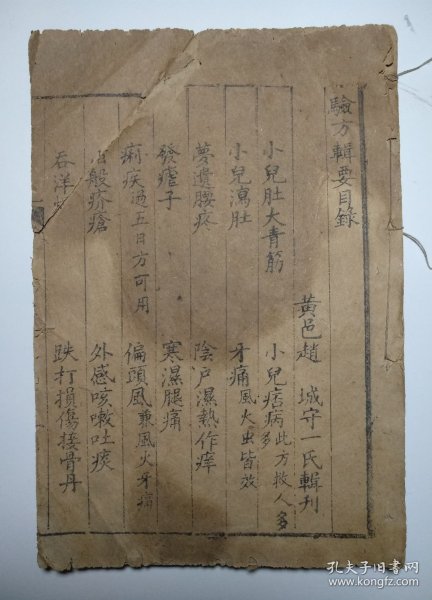 驗方輯要目錄
黃邑趙 城守一氏輯刊
小兒肚大青筋 小兒痞病此方救人多多
小兒瀉肚 牙痛風火虫皆效
夢遺腰疼 陰户濕熱作痒
發瘧子 寒濕腿痛
痢疾過五日方可用 偏頭風兼風火牙痛
般疥瘡 外感咳嗽吐痰
吞洋 跌打損傷接骨丹
孔夫子旧书网
www.kongfz.com